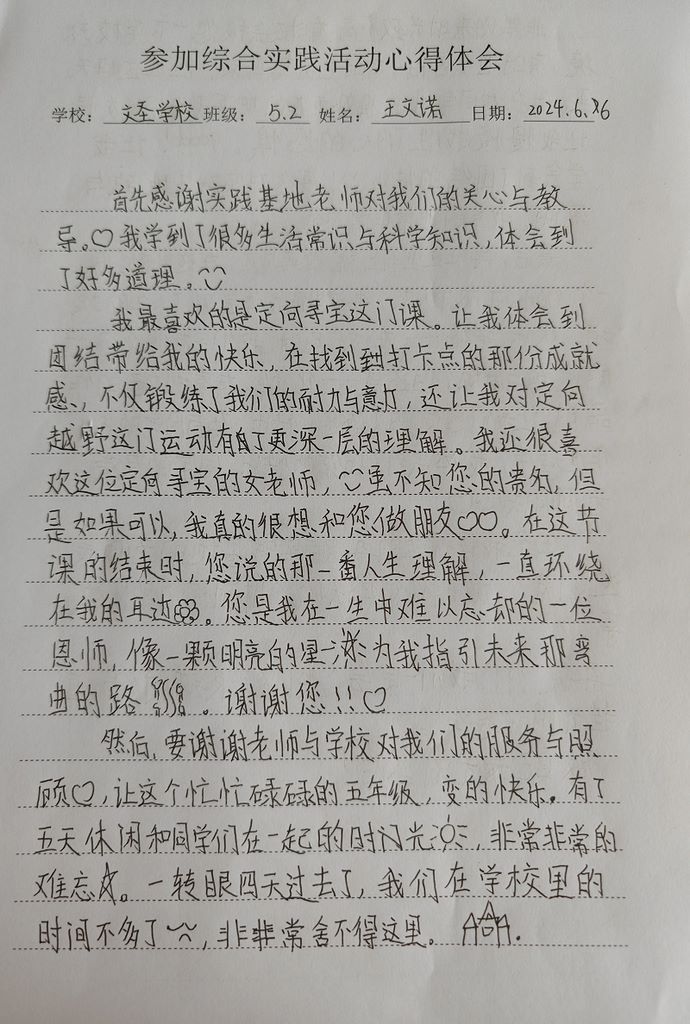 参加综合实践活动心得体会
学校：文圣学校 班级：5.2 姓名：王文诺 日期：2024.6.26
首先感谢实践基地老师对我们的关心与教
导。♡我学到了很多生活常识与科学知识，体会到
了好多道理。
我最喜欢的是定向寻宝这门课。让我体会到
团结带给我的快乐，在找到打卡点的那份成就
感、，不仅锻练了我们的耐力与意力，还让我对定向
越野这门运动有了更深一层的理解。我还很喜
欢这位定向寻宝的女老师，虽不知您的贵名，但
是如果可以，我真的很想和您做朋友♡♡。在这节
课的结束时，您说的那一番人生理解，一直环绕
在我的耳边。您是我在一生中难以忘却的一位
恩师，像一颗明亮的星☆为我指引未来那弯
曲的路。谢谢您！！♡
然后，要谢谢老师与学校对我们的服务与照
顾♡，让这个忙忙碌碌的五年级，变的快乐。有了
五天休闲和同学们在一起的时光，非常非常的
难忘☆。一转眼四天过去了，我们在学校里的
时间不多了，非非常舍不得这里。